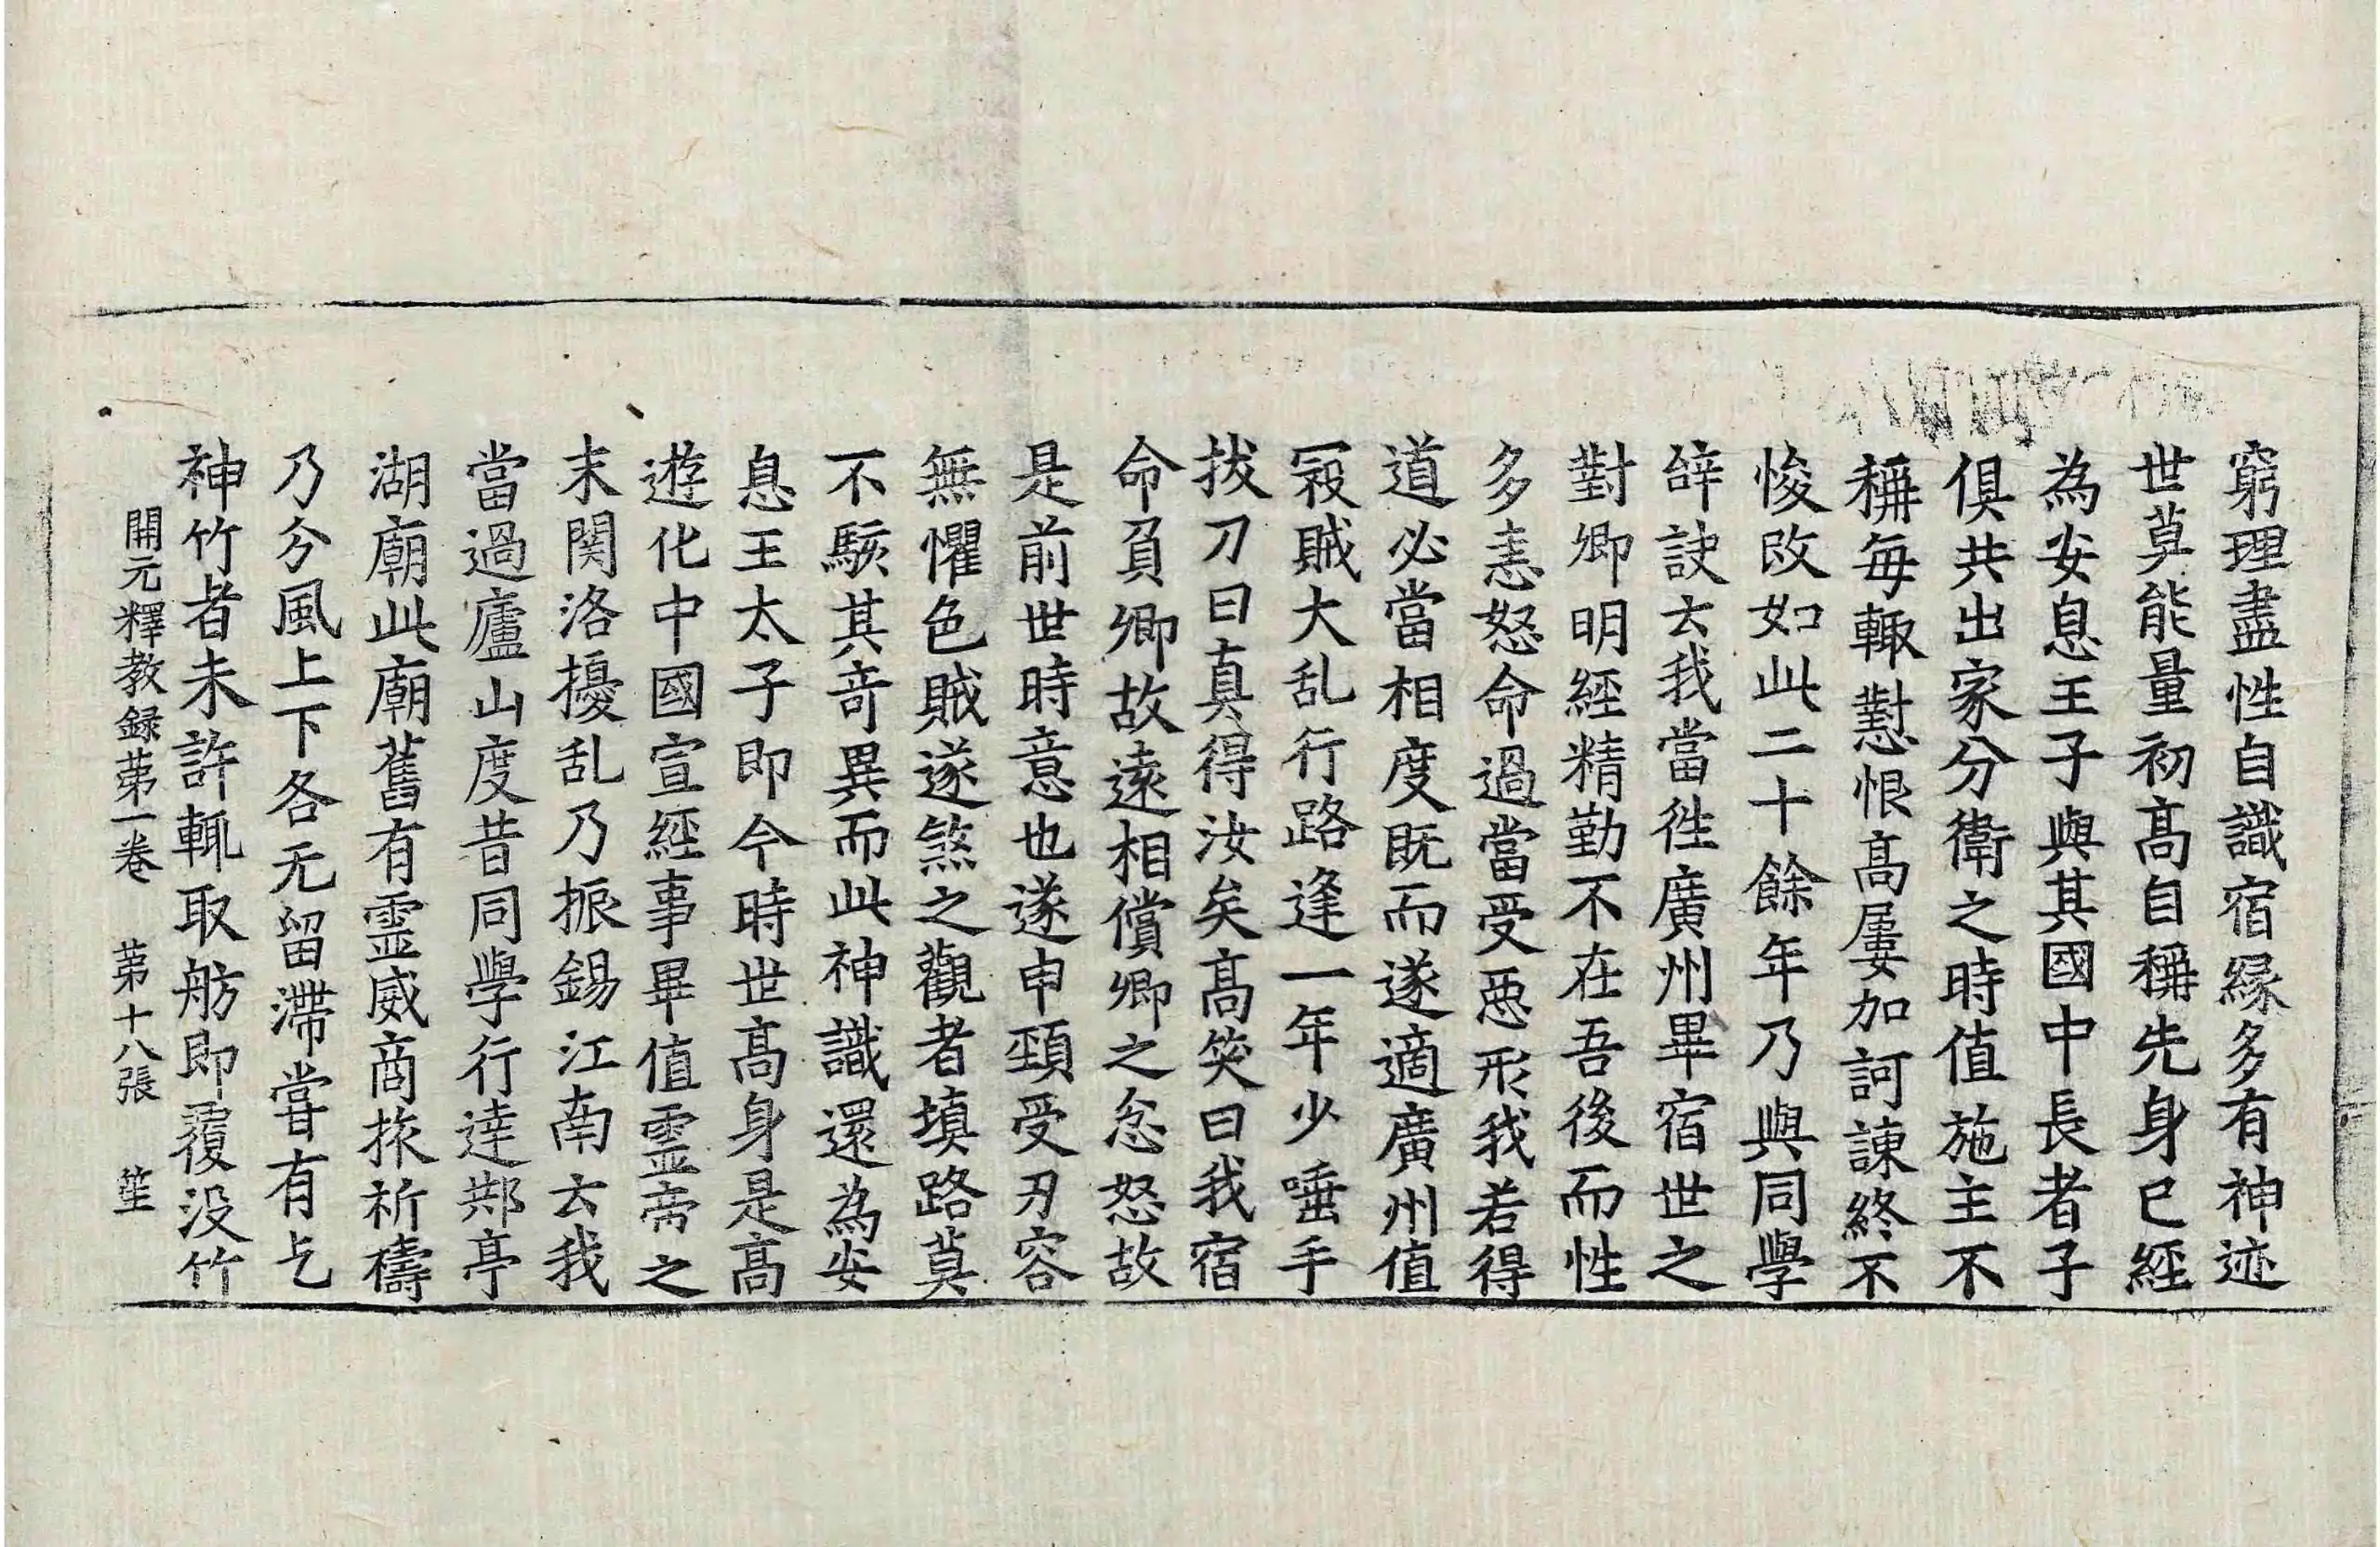 窮理盡性自識宿縁多有神迹
世莫能量初髙自稱先身已經
為安息王子與其國中長者子
俱共出家分衛之時值施主不
稱每輙懟恨髙屢加訶諫終不
悛改如此二十餘年乃與同學
辝訣去我當徃廣州畢宿世之
對卿明經精勤不在吾後而性
多恚怒命過當受惡形我若得
道必當相度既而遂適廣州值
㓂賊大乱行路逢一年少唾手
拔刀曰真得汝矣髙笑曰我宿
命負卿故遠相償卿之忿怒故
是前世時意也遂申頸受刃容
無懼色賊遂煞之觀者填路莫
不駭其竒異而此神識還為安
息王太子即今時世髙身是髙
遊化中國宣經事畢值霊帝之
末関洛擾乱乃振錫江南去我
當過廬山度昔同學行達䢼亭
湖廟此廟舊有霊威商旅祈禱
乃分風上下各无留滯甞有乞
神竹者未許輒取舫即覆没竹
開元釋教録苐一巻 苐十八張 笙